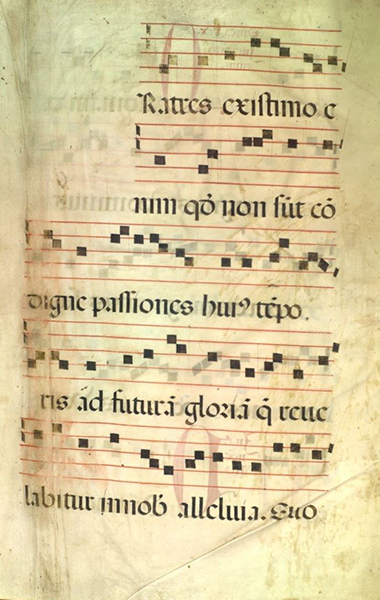 Ratres existimo e
nim qđ non sūt cō
digne passiones huiꝰ tēpo.
ris ad futurā gloriā q̄ reve
labitur in nob̄ alleluia. Euo